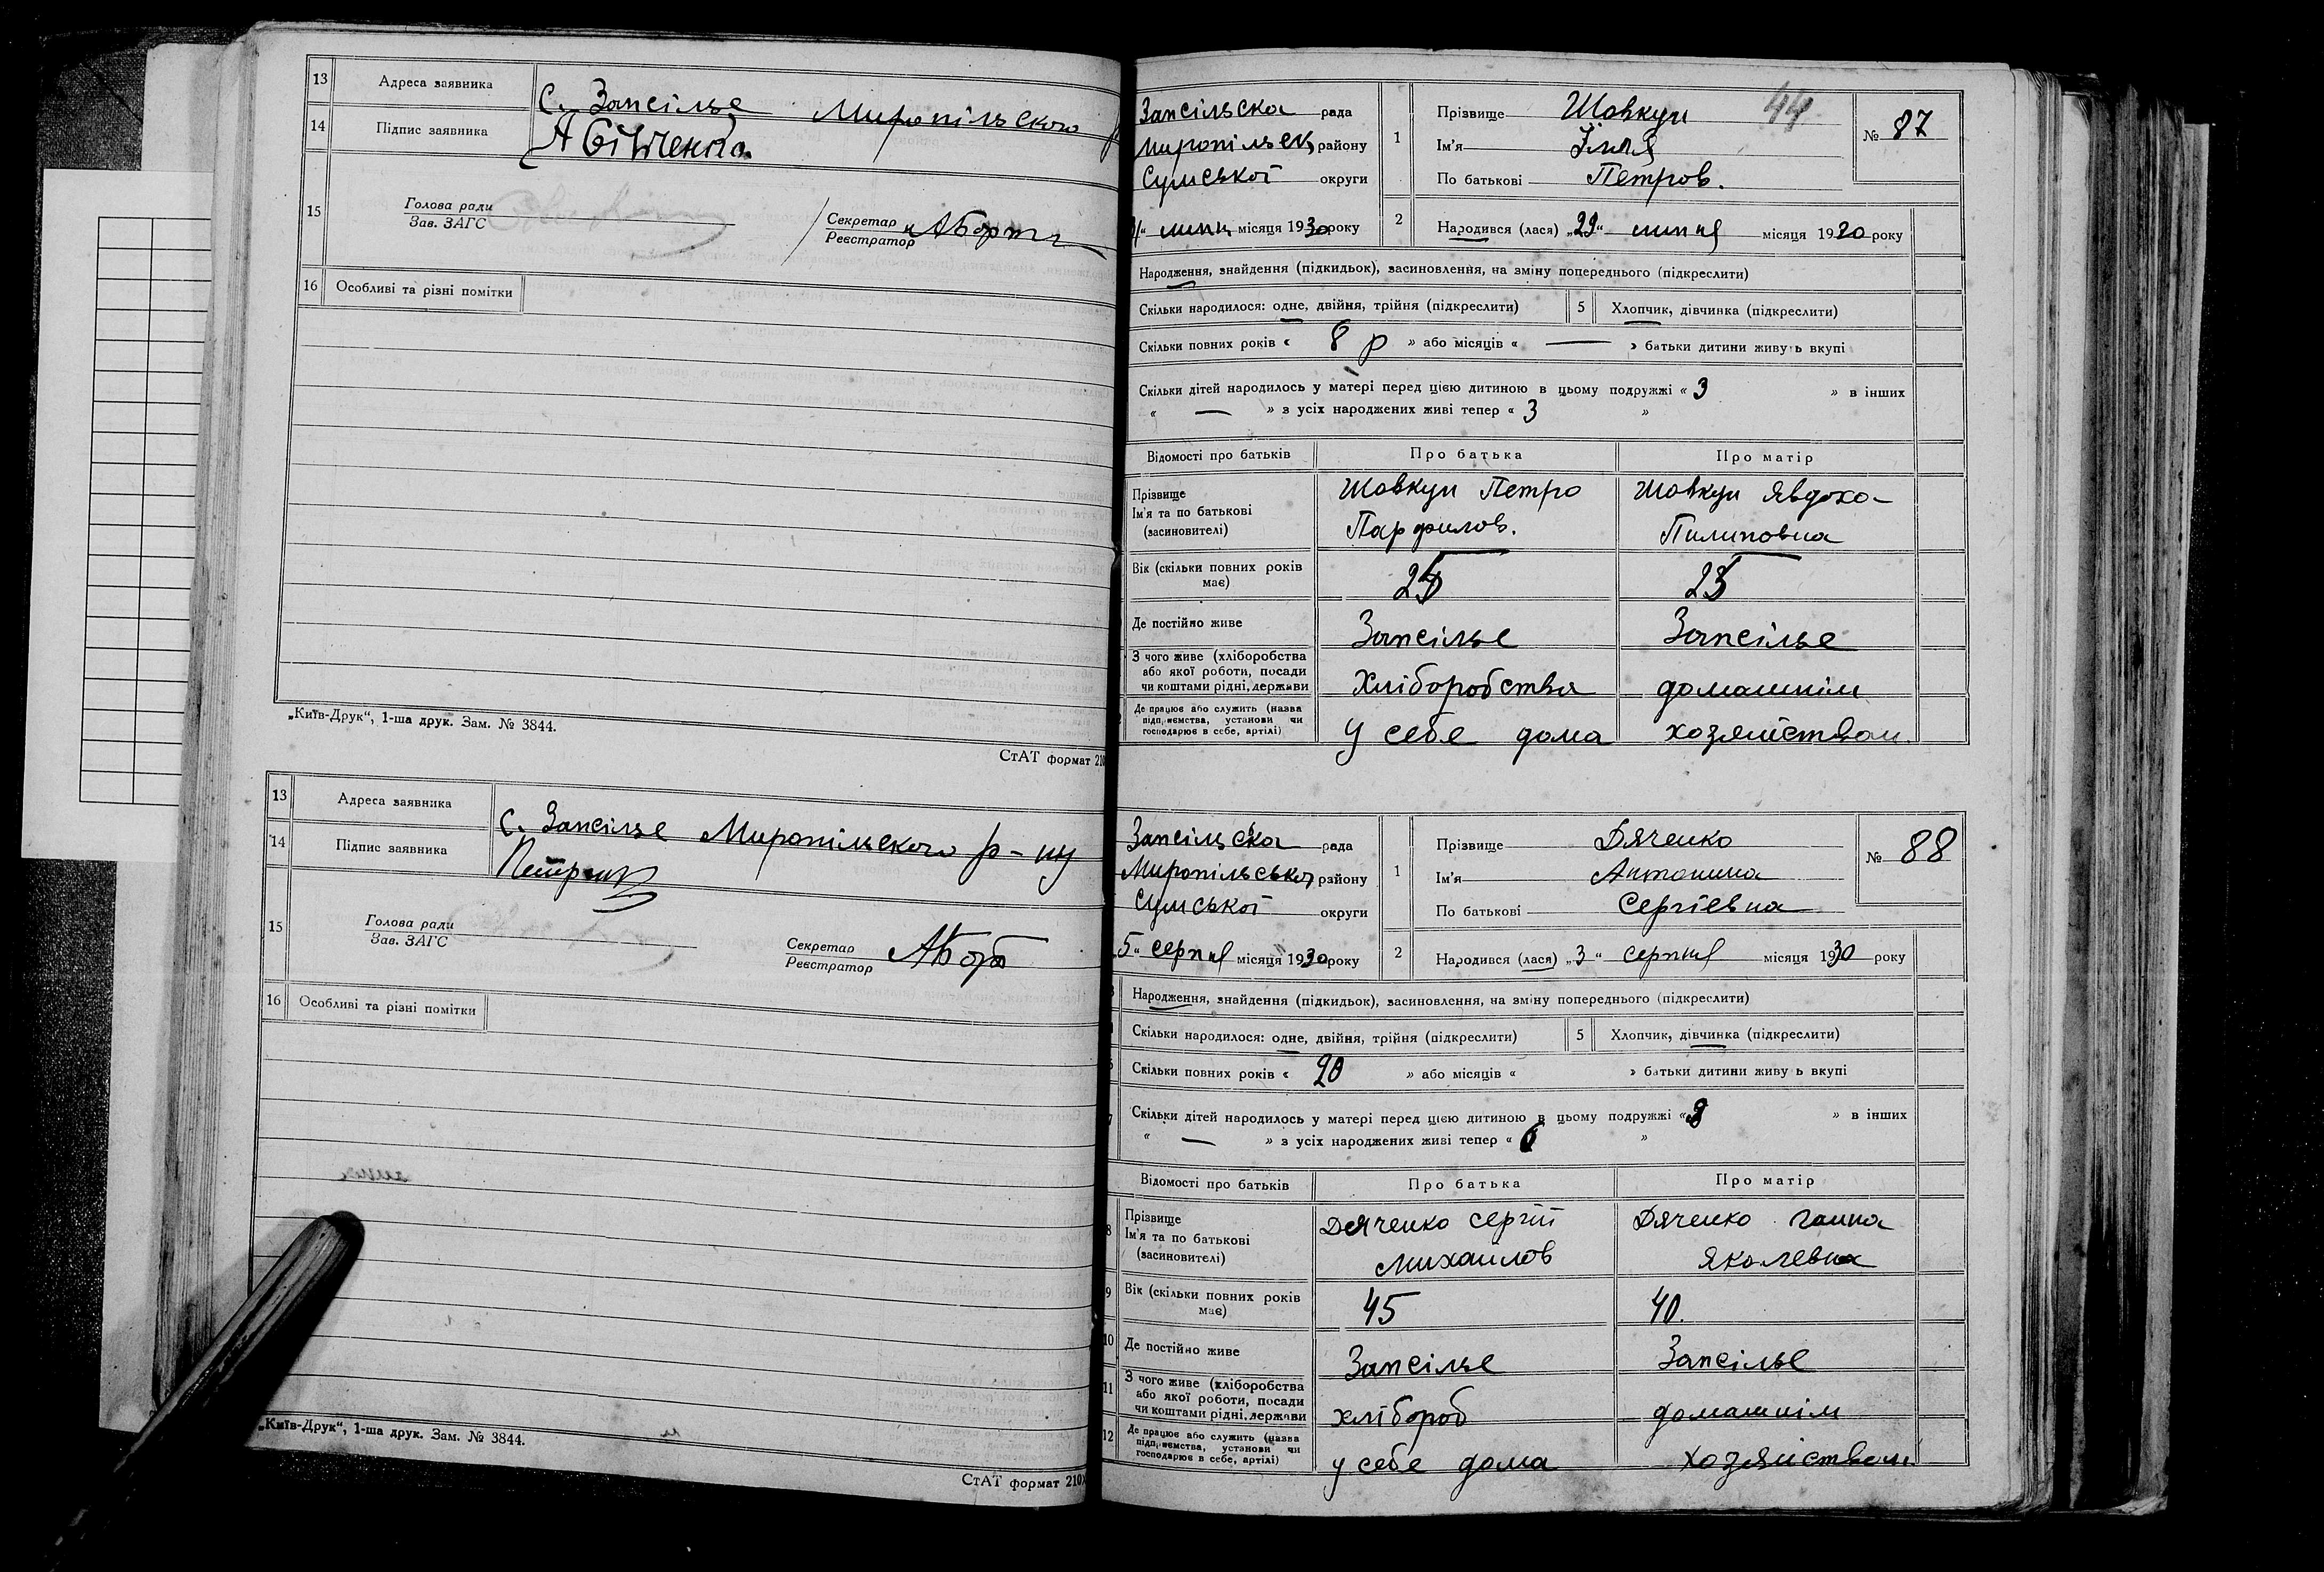 13 Адреса заявника с. Запсілье Миропільского
14 Підпис заявника
15 Голова ради
Зав. ЗАГС
Секретар
Реєстратор
16 Особливі та різні помітки
„Київ-Друк“, 1-ша друк. Зам. № 3844.
СтАТ формат 210
13 Адреса заявника с. Запсілье Миропільского р-ну
14 Підпис заявника
15 Голова ради
Зав. ЗАГС
Секретар
Реєстратор
16 Особливі та різні помітки
„Київ-Друк“, 1-ша друк. Зам. № 3844.
СтАТ формат 210
44
Запсільска рада
району
Сумської округи
місяця 1930 року
1 Прізвище Шовкун
Ім'я Ілля
По батькові Петров.
№ 87
2 Народився (лася) „29“ липня місяця 1930 року
Народження, знайдення (підкидьок), засиновлення, на зміну попереднього (підкреслити)
Скільки народилося: одне, двійня, трійня (підкреслити) 5 Хлопчик, дівчинка (підкреслити)
Скільки повних років « 8 р » або місяців « — » батьки дитини живуть вкупі
Скільки дітей народилось у матері перед цією дитиною в цьому подружжі « 3 » в інших
« — » з усіх народжених живі тепер « 3 »
Відомості про батьків Про батька Про матір
Прізвище Шовкун Петро Шовкун Явдоха
Ім'я та по батькові Парфилов. Пилиповна
(засновителі)
Вік (скільки повних років
має)
Де постійно живе Запсілье Запсілье
З чого живе (хліборобства
або якої роботи, посади
чи коштами рідні, держави Хліборобства домашнім
Де працює або служить (назва
підприємства, установи чи
господарює в себе, артілі) у себе дома хозяйством.
Запсільска рада
району
Сумської округи
5“ серпня місяця 1930 року
1 Прізвище Дяченко
Ім'я Антонина
По батькові Сергіевна
№ 88
2 Народився (лася) „3“ серпня місяця 1930 року
Народження, знайдення (підкидьок), засиновлення, на зміну попереднього (підкреслити)
Скільки народилося: одне, двійня, трійня (підкреслити) 5 Хлопчик, дівчинка (підкреслити)
Скільки повних років « 20 » або місяців « » батьки дитини живуть вкупі
Скільки дітей народилось у матері перед цією дитиною в цьому подружжі « » в інших
« — » з усіх народжених живі тепер « »
Відомості про батьків Про батька Про матір
8 Прізвище Дяченко Сергій Дяченко Ганна
Ім'я та по батькові Михайлов Яколевна
(засновителі)
9 Вік (скільки повних років
має) 45 40.
10 Де постійно живе Запсілье Запсілье
11 З чого живе (хліборобства
або якої роботи, посади
чи коштами рідні, держави хлібороб домашнім
12 Де працює або служить (назва
підприємства, установи чи
господарює в себе, артілі) у себе дома хозяйством.